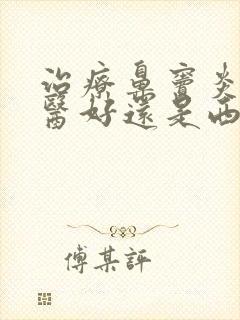 治療鼻竇炎
醫好還是西
傅某評